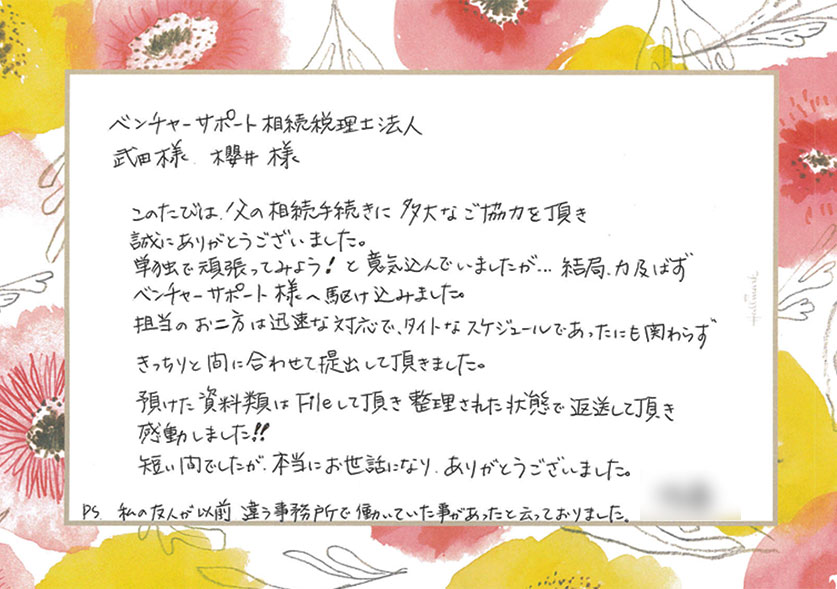 ベンチャーサポート相続税理士法人
武田様 櫻井様
このたびは、父の相続手続きに多大なご協力を頂き
誠にありがとうございました。
単独で頑張ってみよう！と意気込んでいましたが… 結局、力及ばず
ベンチャーサポート様へ駆け込みました。
担当のお二方は迅速な対応で、タイトなスケジュールであったにも関わらず
きっちりと間に合わせて提出して頂きました。
預けた資料類はFileして頂き整理された状態で返送して頂き
感動しました!!
短い間でしたが、本当にお世話になり、ありがとうございました。
PS. 私の友人が以前 違う事務所で働いていた事があったと云っておりました。
Hallmark